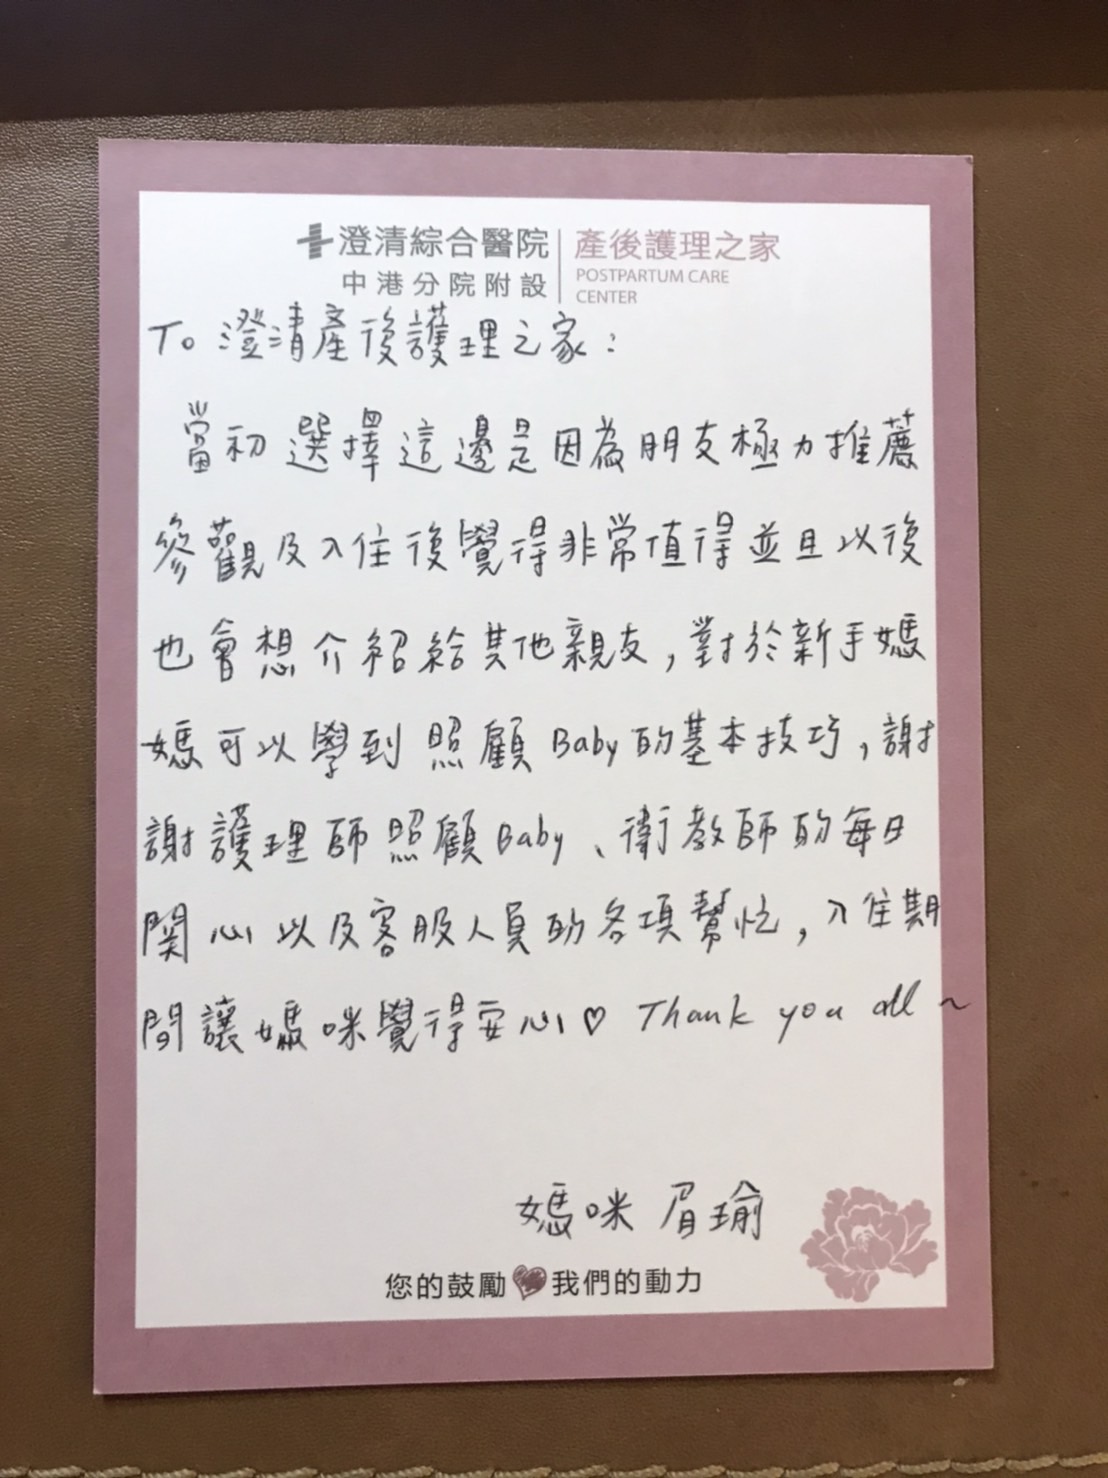 澄清綜合醫院
中港分院附設
產後護理之家
POSTPARTUM CARE
CENTER
To 澄清產後護理之家：
當初選擇這邊是因為朋友極力推薦
參觀及入住後覺得非常值得並且以後
也會想介紹給其他親友，對於新手媽
媽可以學到照顧Baby的基本技巧，謝
謝護理師照顧Baby、衛教師的每日
關心以及客服人員的各項幫忙，入住期
間讓媽咪覺得安心♡ Thank you all ~
媽咪 眉瑜
您的鼓勵 我們的動力